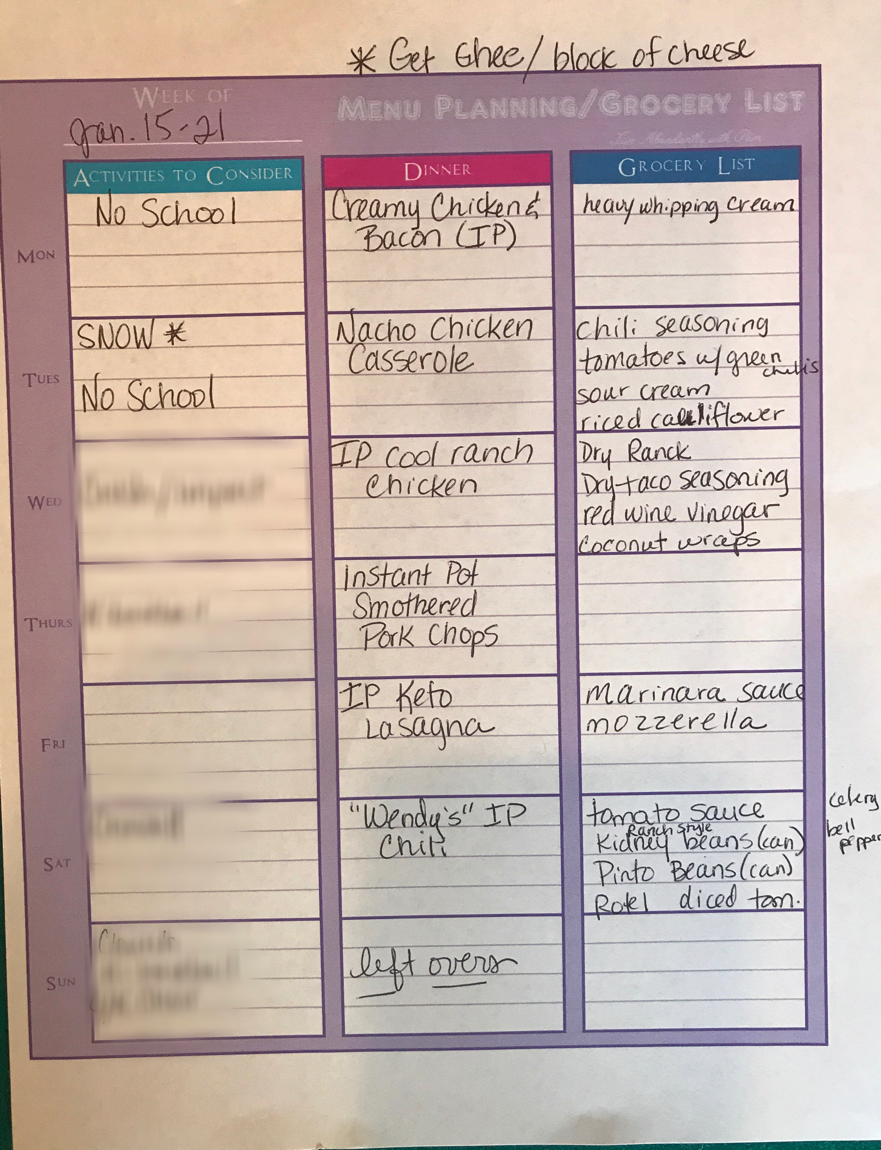 * Get Ghee/block of cheese
WEEK OF
Jan. 15-21
MENU PLANNING/GROCERY LIST
ACTIVITIES TO CONSIDER
DINNER
GROCERY LIST
MON
No School
Creamy Chicken &
Bacon (IP)
heavy whipping cream
TUES
SNOW *
No School
Nacho Chicken
Casserole
Chili seasoning
tomatoes w/green
chilis
sour cream
riced cauliflower
WED
IP cool ranch
Chicken
Dry Ranck
Dry taco seasoning
red wine vinegar
coconut wraps
THURS
Instant Pot
Smothered
Pork Chops
FRI
IP Keto
Lasagna
Marinara sauce
mozzerella
SAT
"Wendy's" IP
Chili
tomato sauce
Ranch Style
Kidney beans (can)
Pinto Beans (can)
Rotel diced tom.
celery
bell
pepper
SUN
left overs